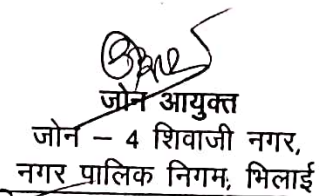 जोन आयुक्त
जोन – 4 शिवाजी नगर,
नगर पालिक निगम, भिलाई